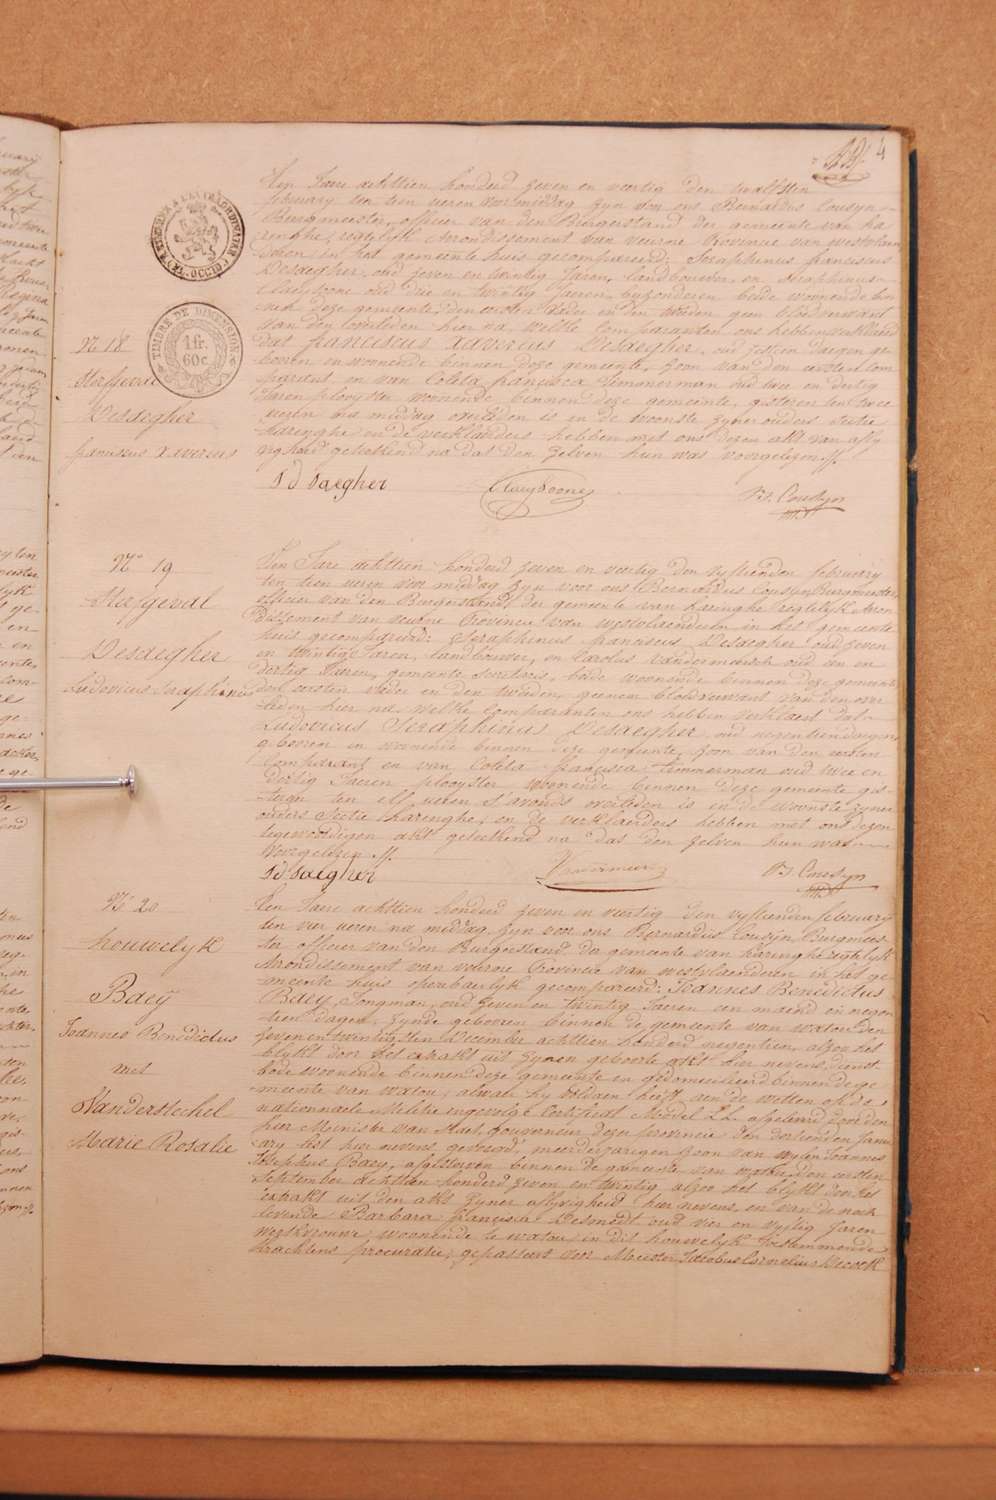 4
TIMBRE DE DIMENSION
1 fr.
60 c.
N 18
Sterfgeval
Desaegher
franciscus Xaverius
Ten Jaere achttien honderd zeven en veertig den twalfsten
february ten tien ueren voormiddag zyn voor ons Bernardus Cousyn
Burgmeester, officier van den Burgerstand der gemeente van ha
ringhe, regtelyk Arrondissement van veurne Provincie van westvlaen
deren in het gemeente huis gecompareerd: Seraphinus franciscus
Desaegher, oud zeven en twintig Jaren, landbouwer, en Seraphinus
Claeysoone oud drie en twintig Jaeren, byzonderen beide woonende bin
nen deze gemeente, den eersten vader en den tweeden geen bloedverwant
van den overleden hier na, welke Comparanten ons hebben verklaerd
dat franciscus Xaverius Desaegher, oud zestien daegen ge
booren en woonende binnen deze gemeente, zoon van den eersten Com
parant en van Coleta francisca Timmerman oud twee en dertig
Jaren, woonende binnen deze gemeente, gisteren ten twee
ueren na middag overleden is in de woonste zyner ouders Sectie
haringhe en de verklaerders hebben met ons dezen akt van afly
vigheid geteekend na dat den zelven hun was voorgelezen //.
S d Saegher Claeysoone Bs. Cousyn
N° 19
Sterfgeval
Desaegher
Ludovicus Seraphinus
Ten Jare achttien honderd zeven en veertig den vyftienden february
ten tien ueren voor middag zyn voor ons Bernardus Cousyn Burgmeester
officier van den Burgerstand der gemeente van haringhe regtelyk Arron
dissement van veurne Provincie van westvlaenderen in het gemeente
huis gecompareerd: Seraphinus franciscus Desaegher oud zeven
en twintig Jaren, landbouwer, en Carolus Vandermeersch oud een en
dertig Jaren, gemeente Secretaris, beide woonende binnen deze gemeente
den eersten vader en den tweeden, geenen bloedverwant van den over
leden hier na, welke Comparanten ons hebben verklaerd dat
Ludovicus Seraphinus Desaegher, oud negentien daegen
gebooren en woonende binnen deze gemeente, zoon van den eersten
Comparant en van Coleta francisca Timmerman oud twee en
dertig Jaeren woonende binnen deze gemeente gis
teren ten elf ueren s'avonds overleden is in de woonste zyner
ouders Sectie haringhe, en de verklaerders hebben met ons dezen
tegenwoordigen akt geteekend na dat den zelven hun was
voorgelezen //.
S d Saegher Vandermeersch Bs. Cousyn
N° 20
houwelyk
Baey
Joannes Benedictus
met
Vanderstichel
Marie Rosalie
Ten Jaere achttien honderd zeven en veertig den vyftienden february
ten vier ueren na middag zyn voor ons Bernardus Cousyn Burgmees
ter officier van den Burgerstand der gemeente van haringhe regtelyk
Arrondissement van veurne Provincie van westvlaenderen in het ge
meente huis openbaerlyk gecompareerd: Joannes Benedictus
Baey, Jongman, oud zeven en twintig Jaeren een maend en negen
tien dagen, zynde gebooren binnen de gemeente van watou den
zeven en twintigsten December achttien honderd negentien, alzoo het
blykt door het extrakt uit zynen geboorte akt hier nevens, dienst
bode woonende binnen deze gemeente en gedomicilieerd binnen de ge
meente van watou, alwaer hy voldaen heeft aen de wetten op de
nationnaele Militie ingevolge Certificat Model LL afgeleverd door den
heer Ministre van Staet, gouverneur dezer provincie den dertienden Janu
ary lest hier nevens gevoegd, meerderjarigen zoon van wylen Joannes
Josephus Baey, afgestorven binnen de gemeente van watou den eersten
September achttien honderd zeven en twintig alzoo het blykt door het
extrakt uit den akt zyner aflyvigheid hier nevens, en van de noch
levende Barbara francisca Desmedt oud vier en vyftig Jaren
werkvrouwe, woonende te watou in dit houwelyk toestemmende
krachtens procuratie, gepasseerd voor Meester Jacobus Cornelius